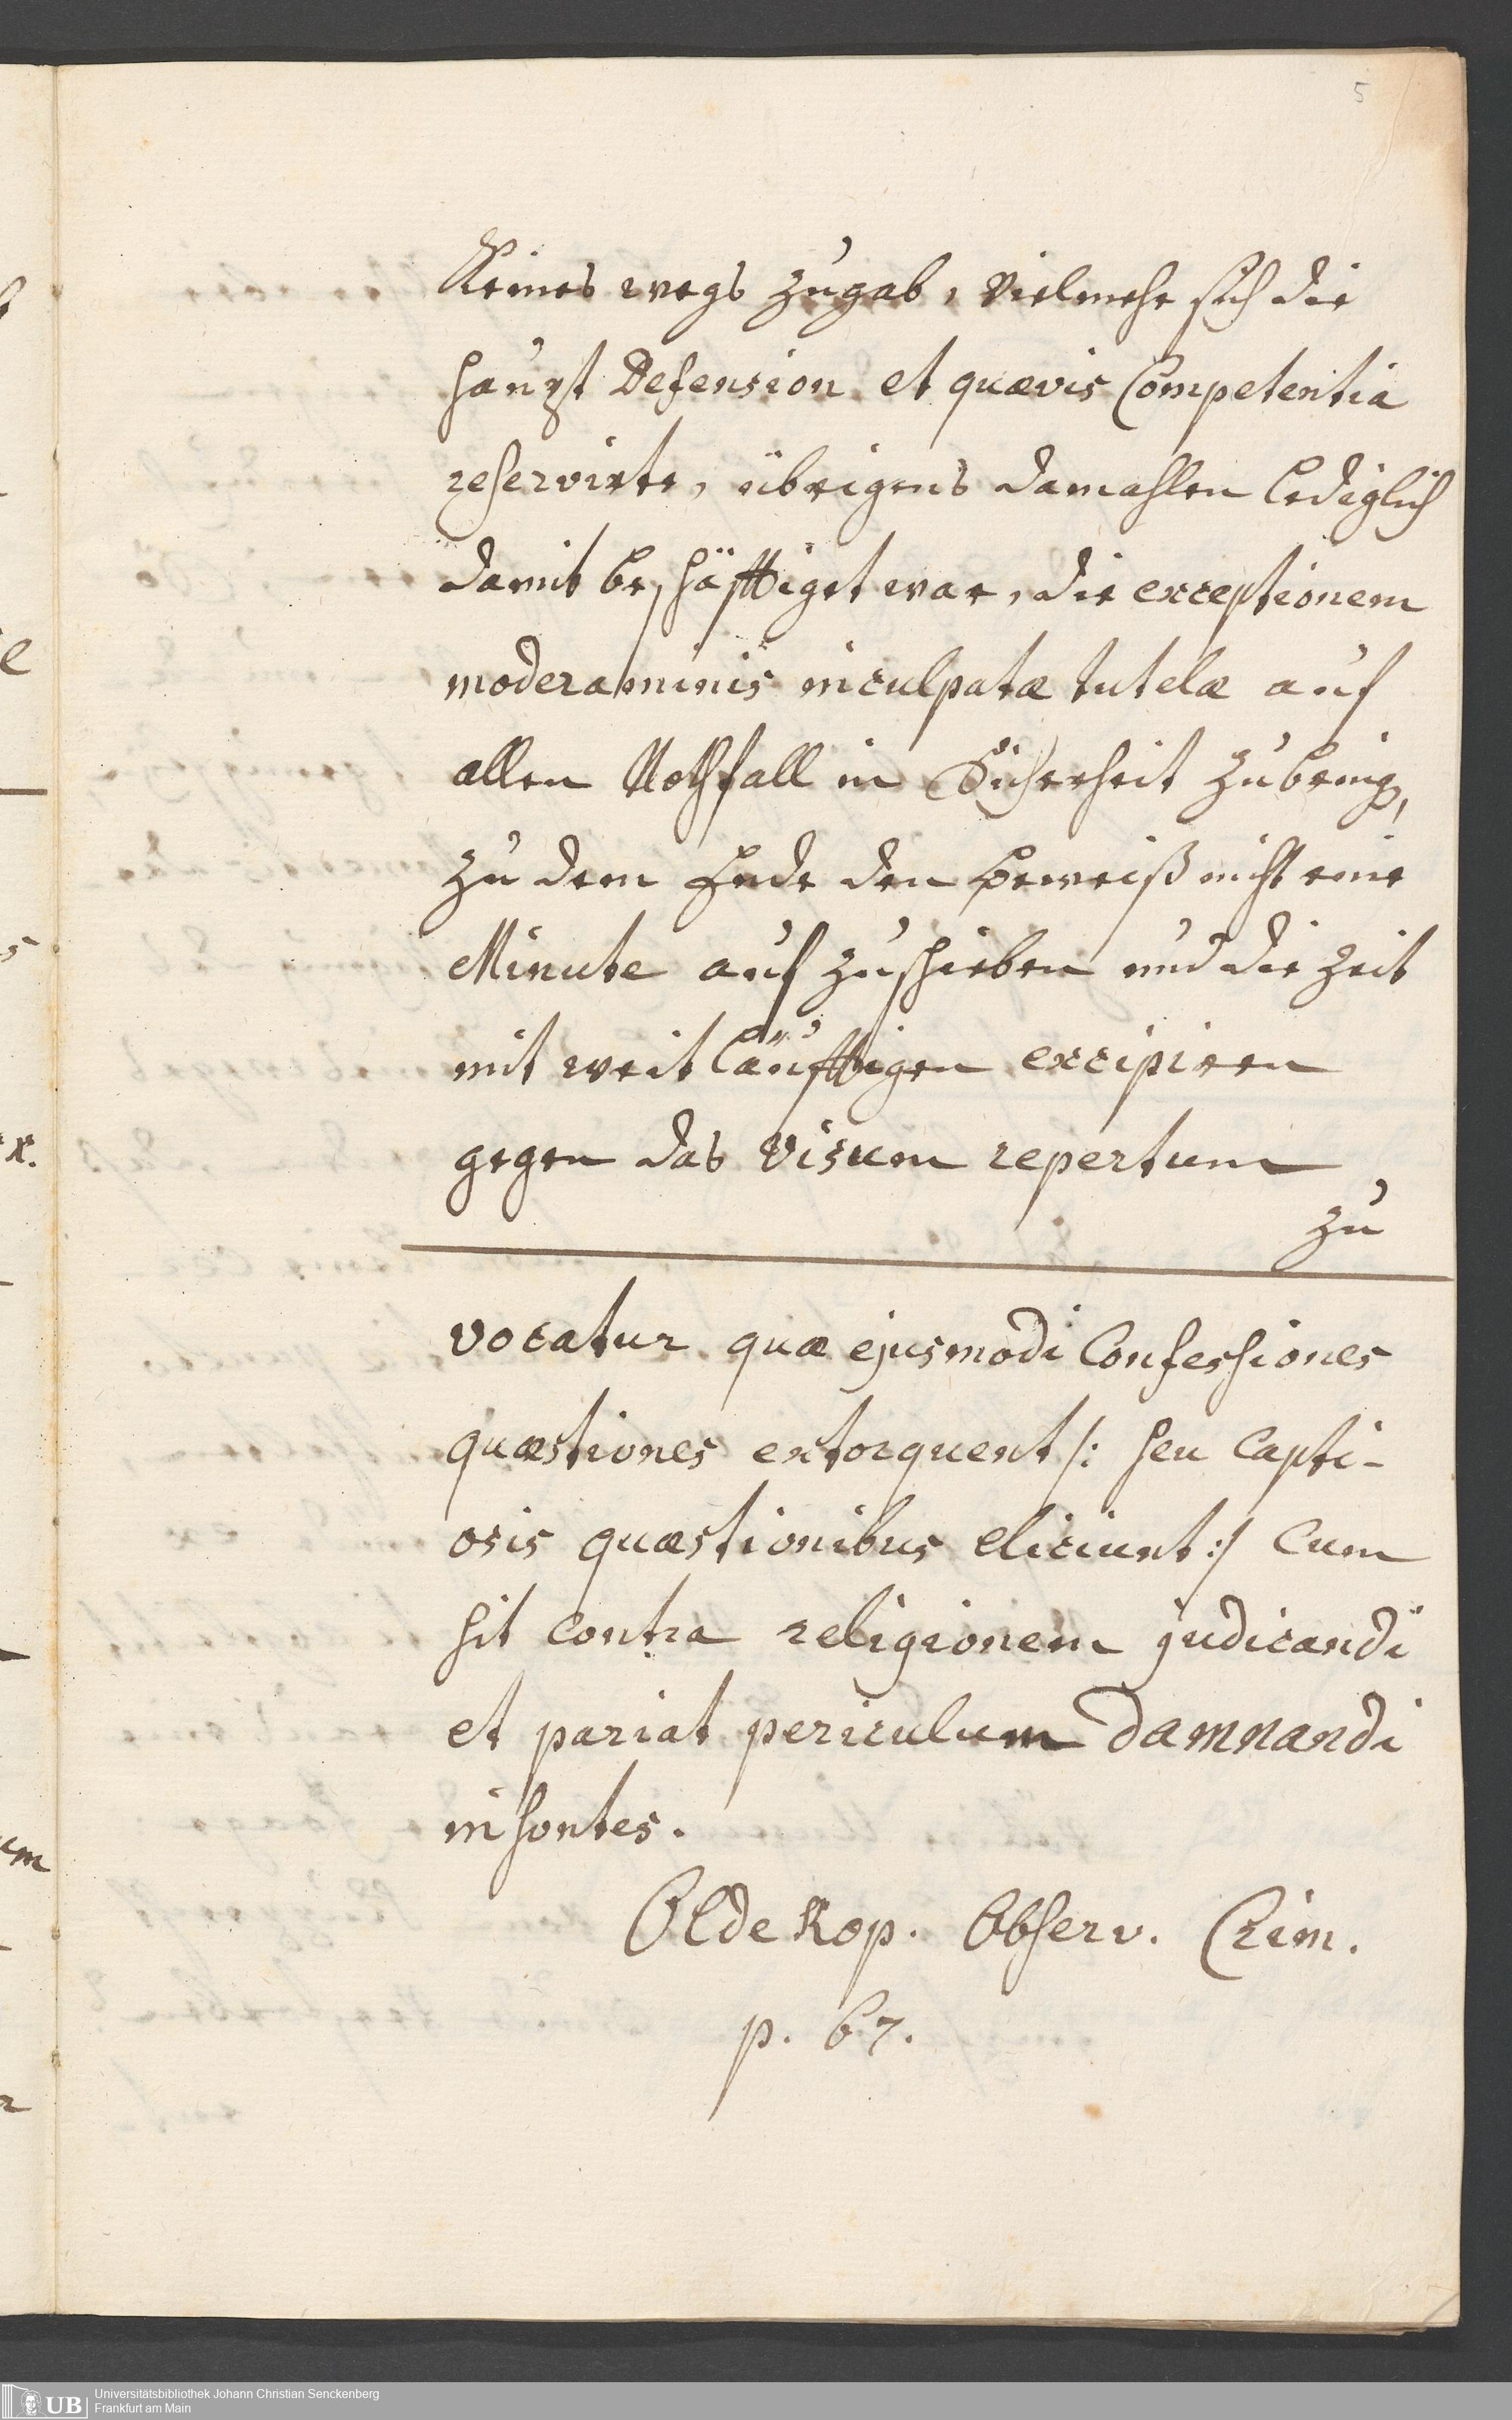 5
Keines wegs zugab, vielmehr sich die
haupt Defension et quævis Competentia
reservirte, übrigens damahlen lediglich
damit beschäfftiget war, die exceptionem
moderaminis inculpatæ tutelæ auf
allen Nothfall in Sicherheit zubring,
zu dem Ende den Beweiß nicht eine
Minute auf zuschieben und die Zeit
mit weit läufftigen excipiren
gegen das Visum repertum
zu
vocatur quæ ejusmodi Confessiones
quæstiones extorquent /: seu Capti-
osis quæstionibus eliciunt :/ Cum
sit contra religionem judicandi
et pariat periculum damnandi
insontes.
Oldekop. Observ. Crim.
p. 67.
UB Universitätsbibliothek Johann Christian Senckenberg
Frankfurt am Main